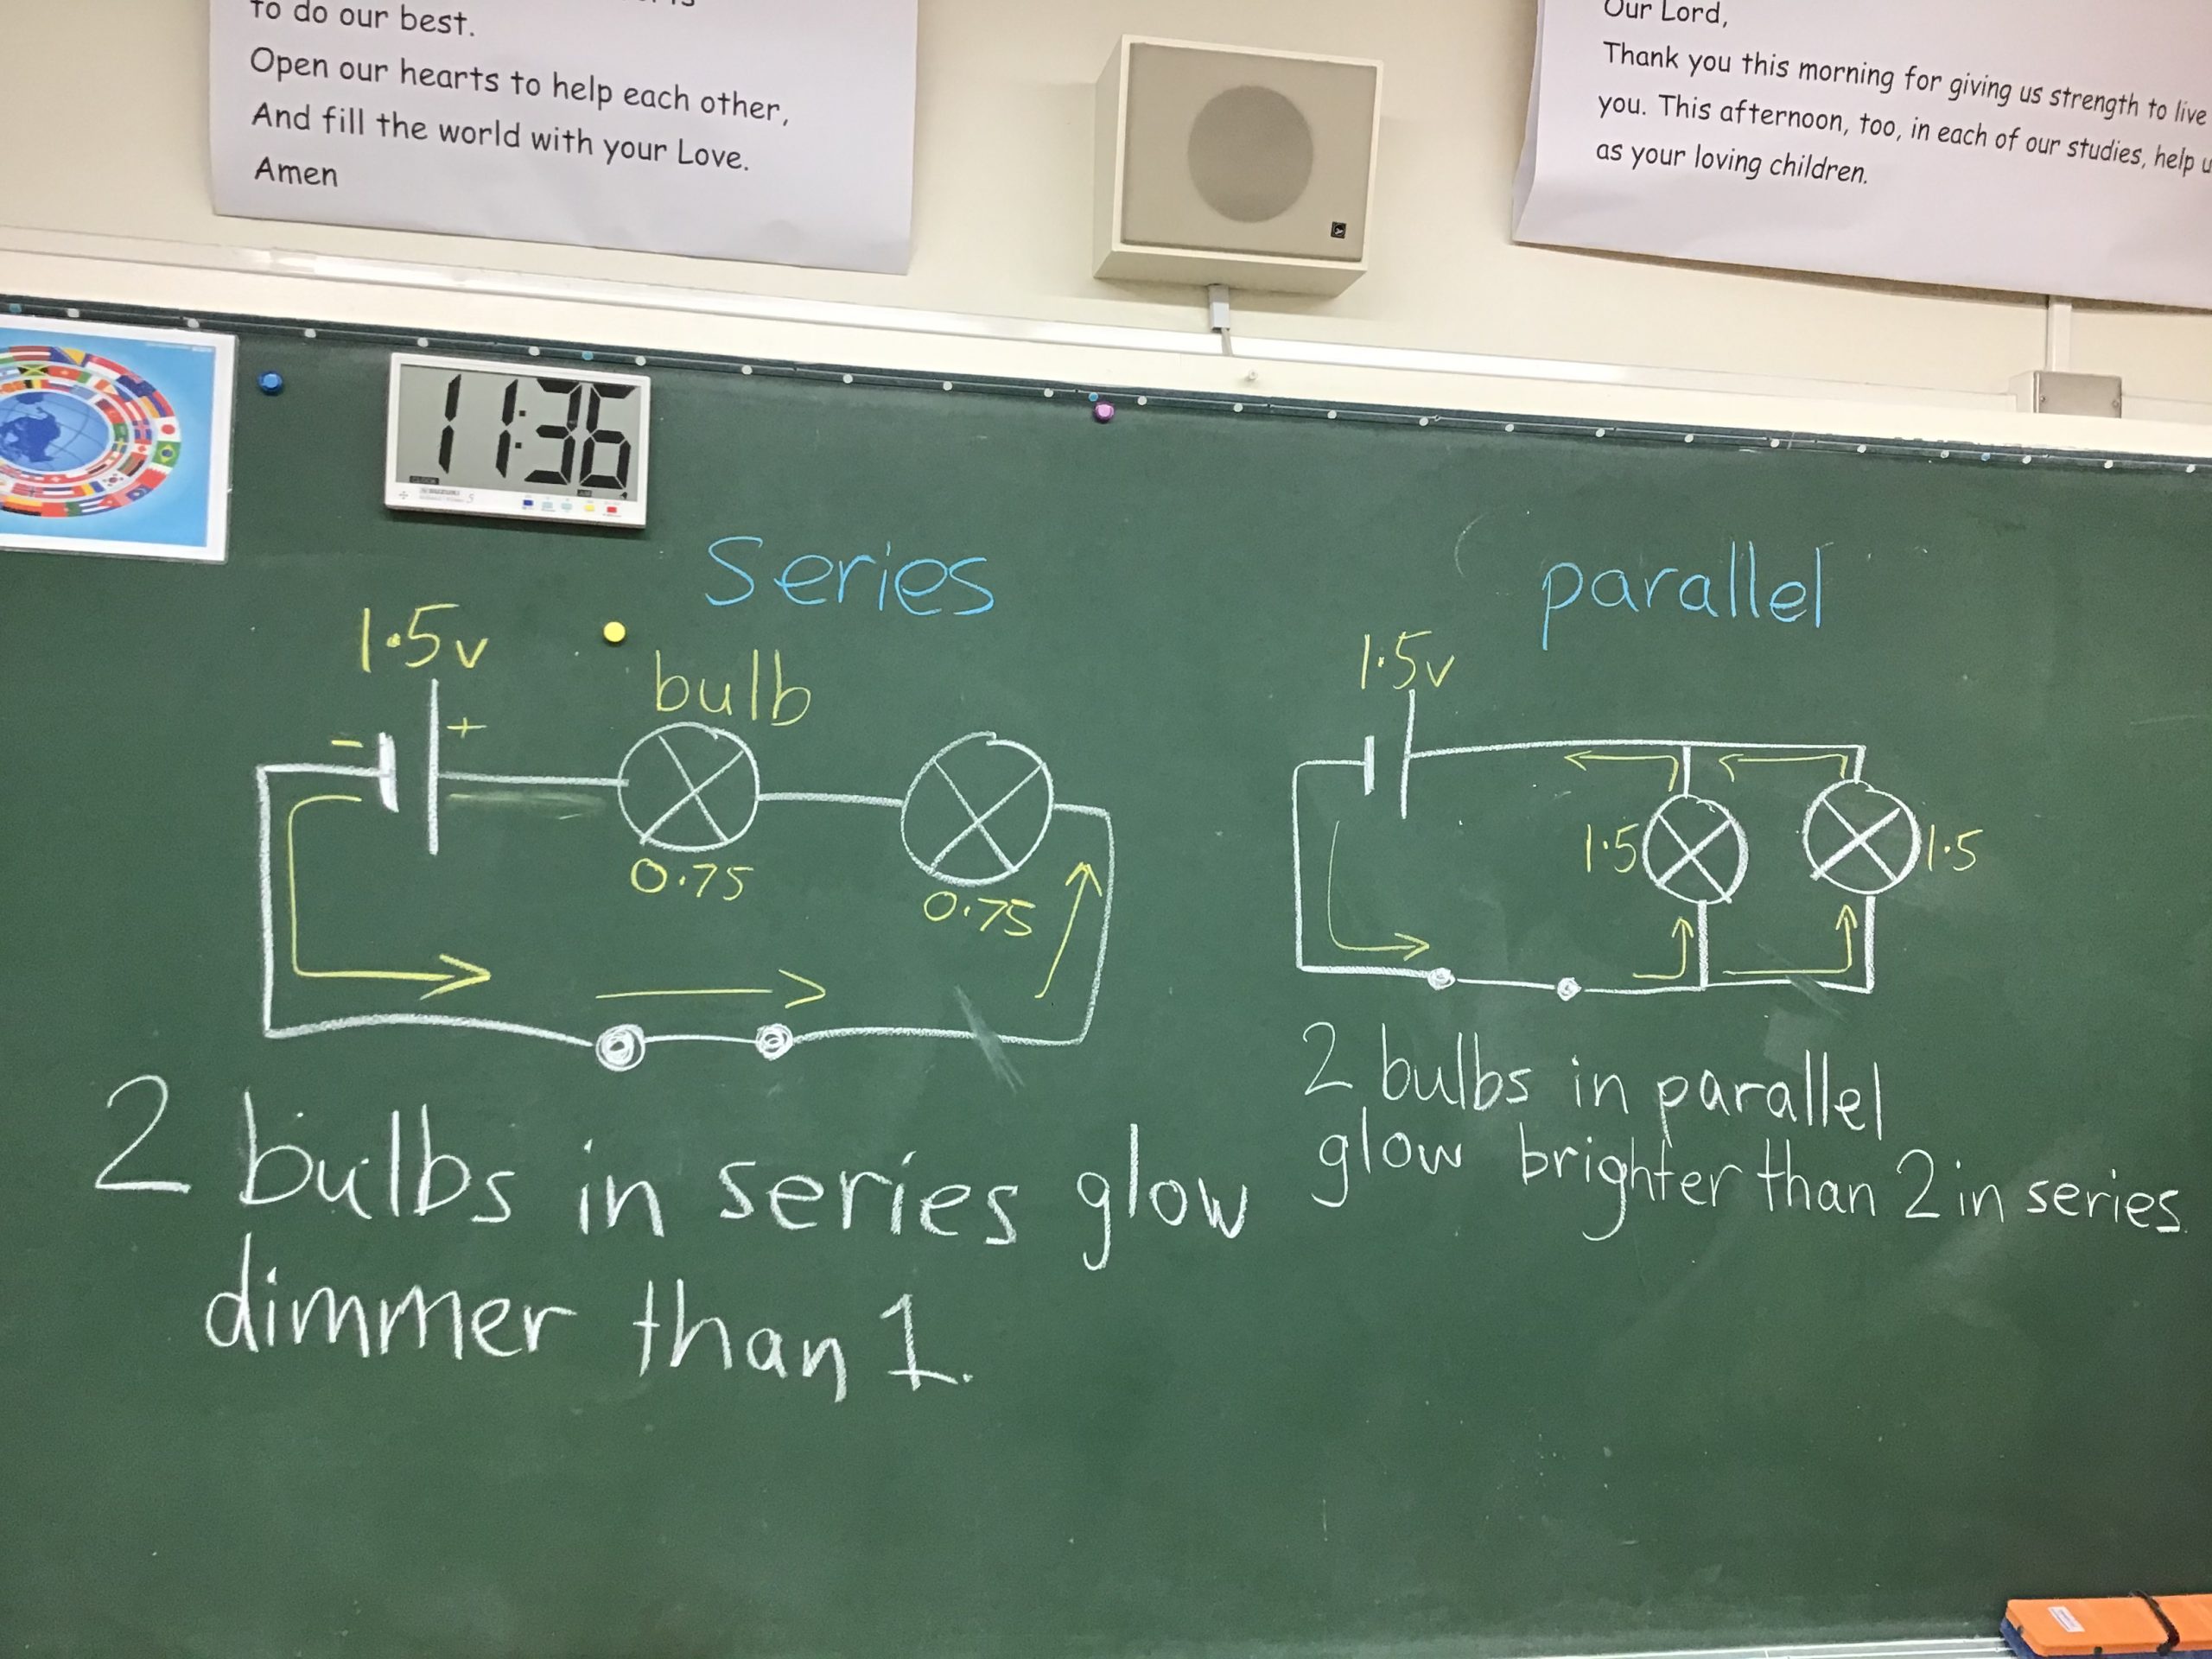 to do our best.
Open our hearts to help each other,
And fill the world with your Love.
Amen
Our Lord,
Thank you this morning for giving us strength to live
you. This afternoon, too, in each of our studies, help u
as your loving children.
11:36
Series
1.5v
bulb
- +
0.75
0.75
2 bulbs in series glow
dimmer than 1.
parallel
1.5v
1.5
1.5
2 bulbs in parallel
glow brighter than 2 in series.